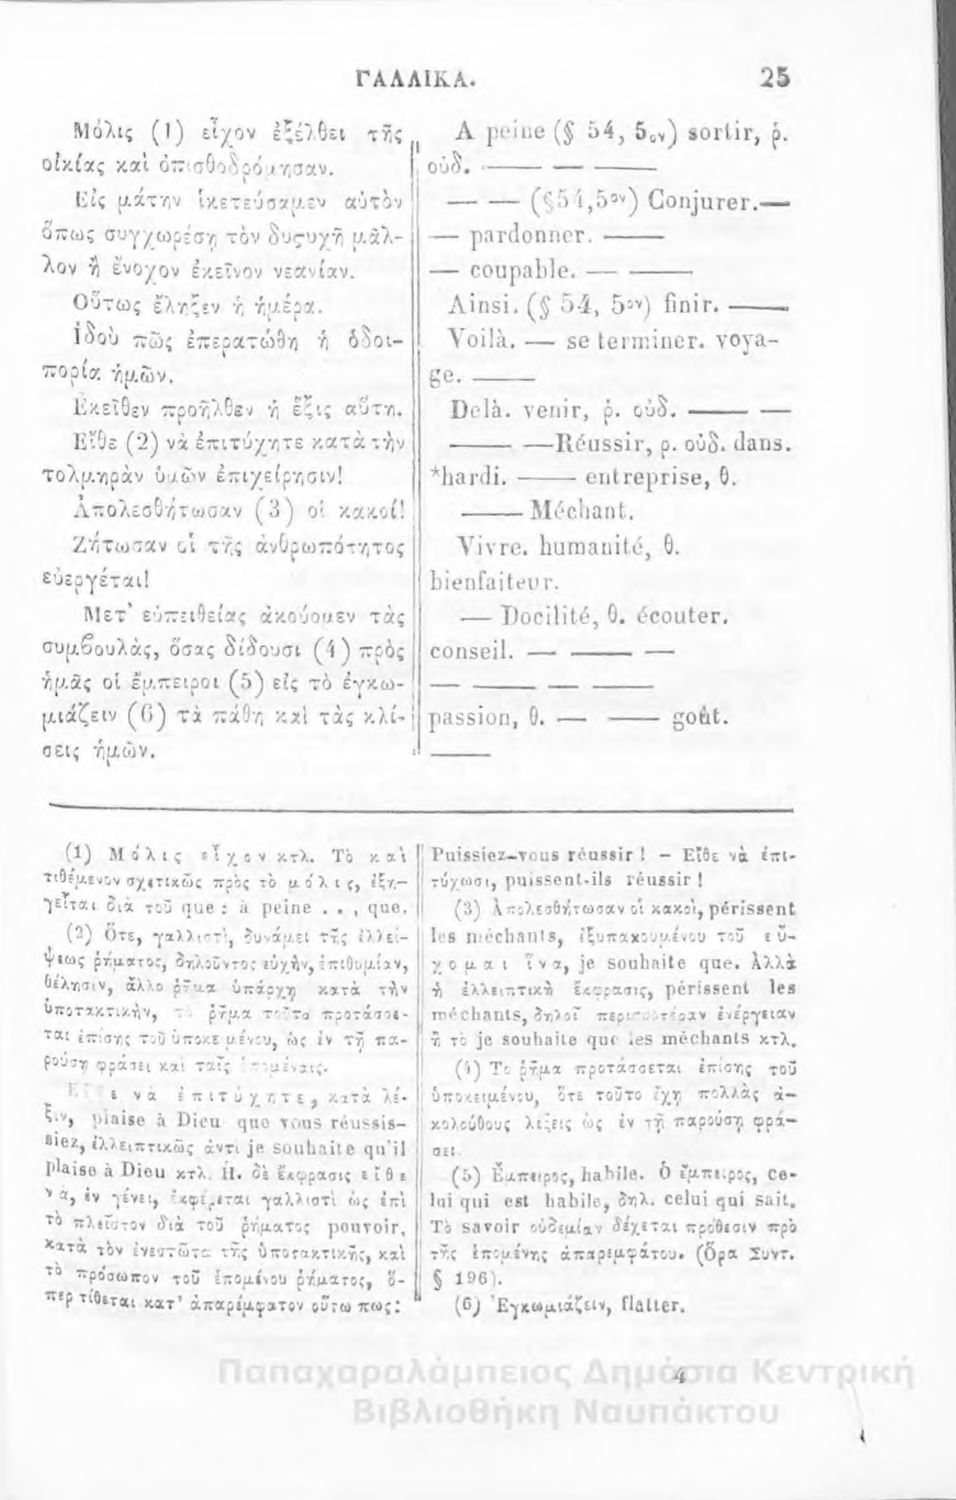 ΓΑΛΛΙΚΑ.
25
Μόλις (1) εἶχον ἐξέλθει τῆς
οἰκίας καὶ ὀπισθοδρόμησαν.
Εἰς μάτην ἱκετεύσαμεν αὐτὸν
ὅπως συγχωρέσῃ τὸν δυςυχῆ μᾶλ-
λον ἢ ἔνοχον ἐκεῖνον νεανίαν.
Οὕτως ἔληξεν ἡ ἡμέρα.
Ἰδοὺ πῶς ἐπερατώθη ἡ ὁδοι-
πορία ἡμῶν.
Ἐκεῖθεν προῆλθεν ἡ ἕξις αὕτη.
Εἴθε (2) νὰ ἐπιτύχητε κατὰ τὴν
τολμηρὰν ὑμῶν ἐπιχείρησιν!
Ἀπολεσθήτωσαν (3) οἱ κακοί!
Ζήτωσαν οἱ τῆς ἀνθρωπότητος
εὐεργέται!
Μετ’ εὐπειθείας ἀκούομεν τὰς
συμβουλὰς, ὅσας δίδουσι (4) πρὸς
ἡμᾶς οἱ ἔμπειροι (5) εἰς τὸ ἐγκω-
μιάζειν (6) τὰ πάθη καὶ τὰς κλί-
σεις ἡμῶν.
A peine (§ 54, 5ον) sortir, ῥ.
οὐδ. — — —
— — (§54,5ον) Conjurer.—
— pardonner. —
— coupable. — —
Ainsi. (§ 54, 5ον) finir. —
Voilà. — se terminer. voya-
ge. —
Delà. venir, ῥ. οὐδ. — —
— —Réussir, ρ. οὐδ. dans.
*hardi. — entreprise, θ.
— Méchant.
Vivre. humanité, θ.
bienfaiteur.
— Docilité, θ. écouter.
conseil. — — —
— — — —
passion, θ. — — goût.
—
(1) Μόλις εἶχον κτλ. Τὸ καὶ
τιθέμενον σχετικῶς πρὸς τὸ μόλις, ἐξη-
γεῖται διὰ τοῦ que : à peine . . , que.
(2) Ὅτε, γαλλιστὶ, δυνάμει τῆς ἐλλεί-
ψεως ῥήματος, δηλοῦντος εὐχὴν, ἐπιθυμίαν,
θέλησιν, ἄλλο ῥῆμα ὑπάρχῃ κατὰ τὴν
ὑποτακτικὴν, τὸ ῥῆμα τοῦτο προτάσσε-
ται ἐπίσης τοῦ ὑποκειμένου, ὡς ἐν τῇ πα-
ρούσῃ φράσει καὶ ταῖς ἑπομέναις.
Εἴθε νὰ ἐπιτύχητε, κατὰ λέ-
ξιν, plaise à Dieu que vous réussis-
siez, ἐλλειπτικῶς ἀντὶ je souhaite qu'il
plaise à Dieu κτλ. Ἡ. δὲ ἔκφρασις εἴθε
νὰ, ἐν γένει, ἐκφέρεται γαλλιστὶ ὡς ἐπὶ
τὸ πλεῖστον διὰ τοῦ ῥήματος pouvoir,
κατὰ τὸν ἐνεστῶτα τῆς ὑποτακτικῆς, καὶ
τὸ πρόσωπον τοῦ ἑπομένου ῥήματος, ὅ-
περ τίθεται κατ’ ἀπαρέμφατον οὕτω πως:
Puissiez-vous réussir ! – Εἴθε νὰ ἐπι-
τύχωσι, puissent-ils réussir !
(3) Ἀπολεσθήτωσαν οἱ κακοὶ, périssent
les méchants, ἐξυπακουομένου τοῦ εὔ-
χομαι ἵνα, je souhaite que. Ἀλλὰ
ἡ ἐλλειπτικὴ ἔκφρασις, périssent les
méchants, δηλοῖ περισσοτέραν ἐνέργειαν
ἢ τὸ je souhaite que les méchants κτλ.
(4) Τὸ ῥῆμα προτάσσεται ἐπίσης τοῦ
ὑποκειμένου, ὅτε τοῦτο ἔχῃ πολλὰς ἀ-
κολούθους λέξεις ὡς ἐν τῇ παρούσῃ φρά-
σει.
(5) Ἔμπειρος, habile. Ὁ ἔμπειρος, ce-
lui qui est habile, δηλ. celui qui sait.
Τὸ savoir οὐδεμίαν δέχεται πρόθεσιν πρὸ
τῆς ἑπομένης ἀπαρεμφάτου. (Ὅρα Συντ.
§ 196).
(6) Ἐγκωμιάζειν, flatter.
4
Παπαχαραλάμπειος Δημόσια Κεντρική
Βιβλιοθήκη Ναυπάκτου